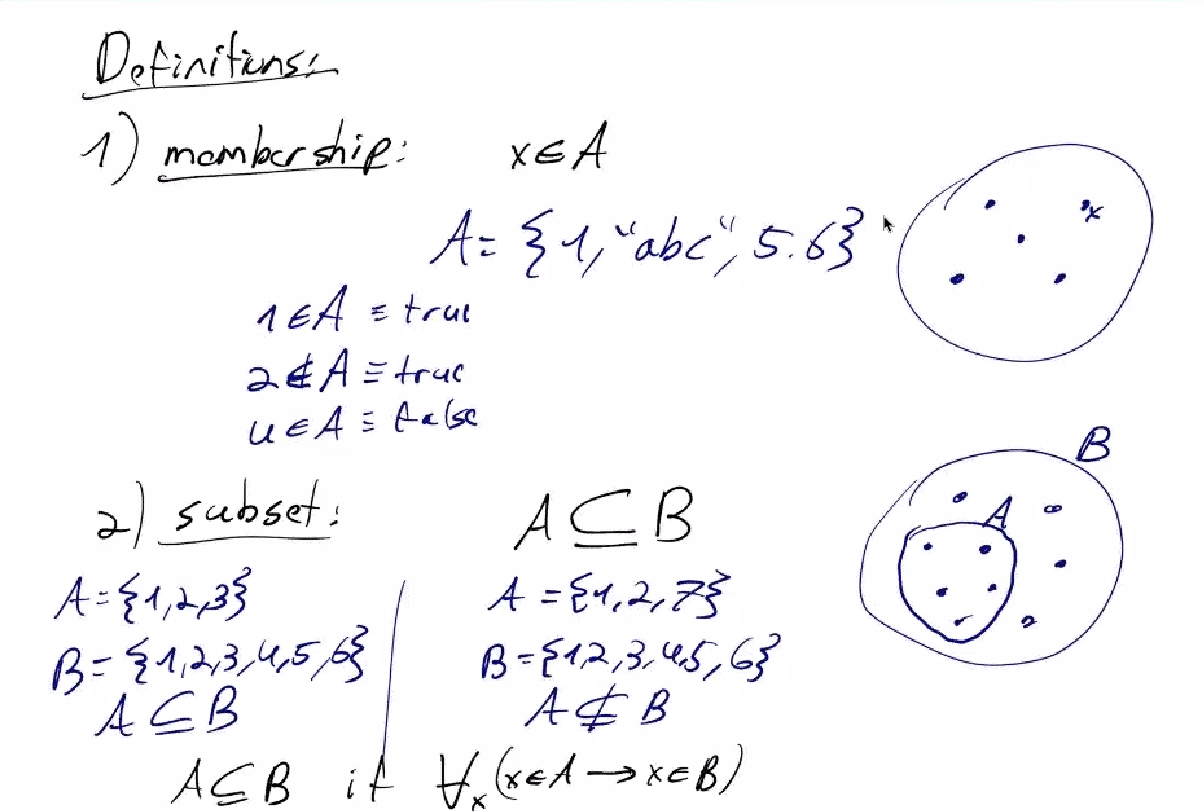 Definitions:
1) membership: x∈A
A= {1, "abc", 5.6}
x
1∈A ≡ true
2∉A ≡ true
4∈A ≡ false
B
A
2) subset: A⊆B
A={1,2,3}
B={1,2,3,4,5,6}
A⊆B
A={1,2,7}
B={1,2,3,4,5,6}
A⊈B
A⊆B if ∀x(x∈A→x∈B)